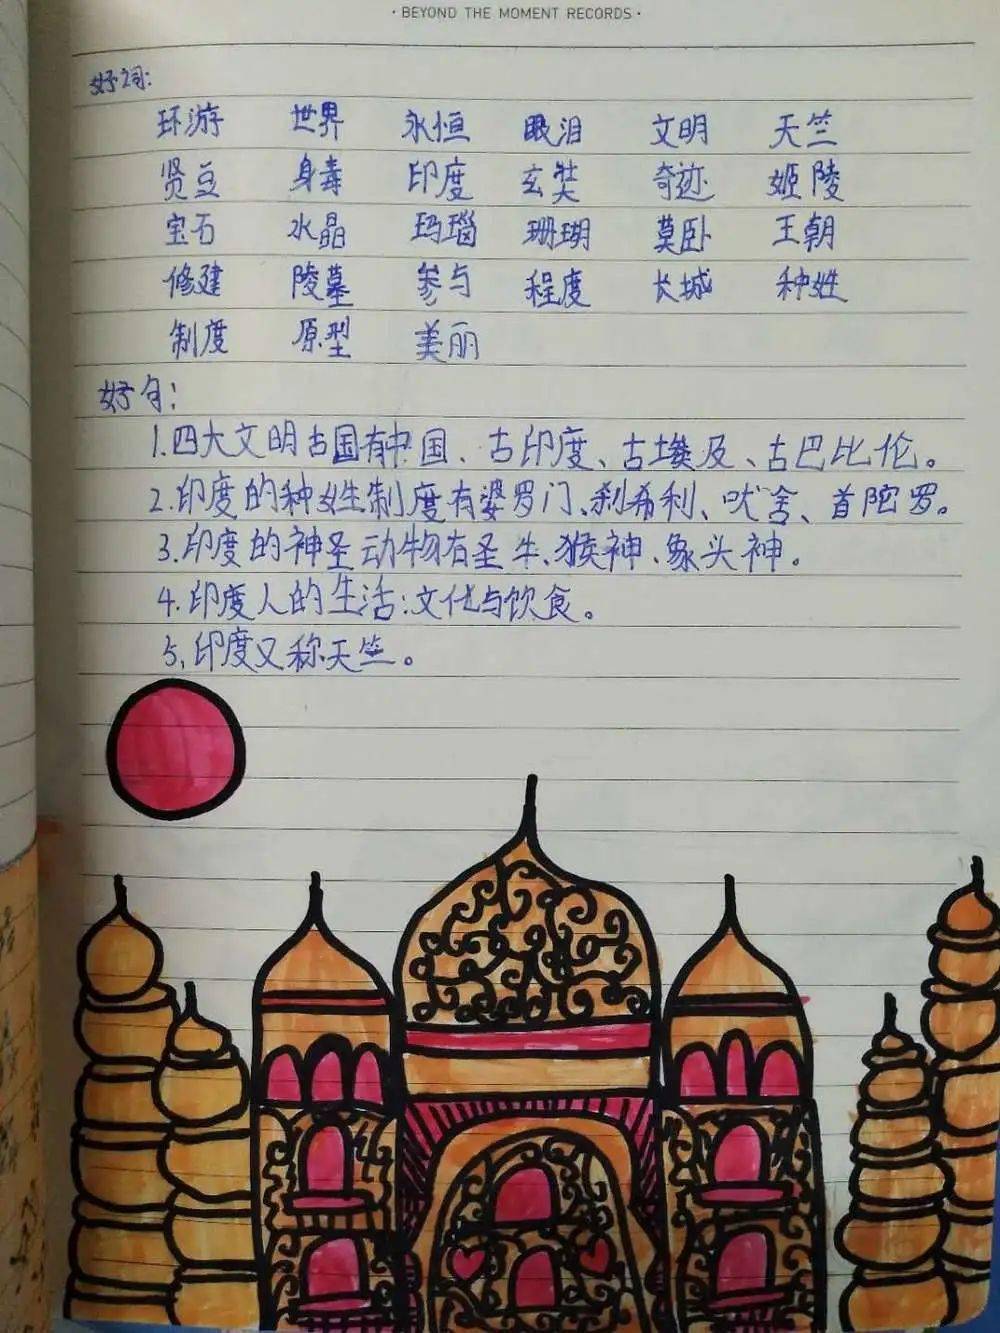 · BEYOND THE MOMENT RECORDS ·
好词:
环游 世界 永恒 眼泪 文明 天竺
贤豆 身毒 印度 玄奘 奇迹 姬陵
宝石 水晶 玛瑙 珊瑚 莫卧 王朝
修建 陵墓 参与 程度 长城 种姓
制度 原型 美丽
好句:
1.四大文明古国有中国、古印度、古埃及、古巴比伦。
2.印度的种姓制度有婆罗门、刹希利、吠舍、首陀罗。
3.印度的神圣动物有圣牛、猴神、象头神。
4.印度人的生活:文化与饮食。
5.印度又称天竺。